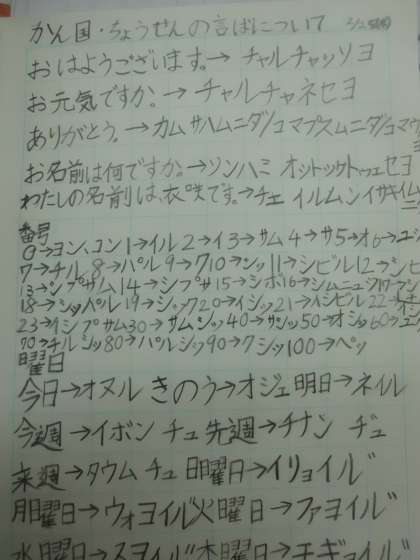 かん国・ちょうせんの言ばについて
おはようございます。→ チャルチャッソヨ
お元気ですか。→ チャルチャネセヨ
ありがとう。→カムサハムニダ/コマプスムニダ/コマウ
お名前は何ですか。→ソンハミ オットットゥエセヨ
わたしの名前は、衣咲です。→チェ イルムン イサキイム
番号
0→ヨン、コン 1→イル 2→イ 3→サム 4→サ 5→オ 6→ユ
7→チル 8→パル 9→ク 10→シッ 11→シビル 12→シビ
13→シプサム 14→シプサ 15→シボ 16→シムニュク 17→
18→シッパル 19→シック 20→イシッ 21→イシビル 22→
23→イシプサム 30→サムシッ 40→サシッ 50→オシッ 60→
70→チルシッ 80→パルシッ 90→クシッ 100→ペッ
曜日
今日→オヌル きのう→オジェ 明日→ネイル
今週→イボン チュ 先週→チナン ヂュ
来週→タウム チュ 日曜日→イリョイル
月曜日→ウォヨイル 火曜日→ファヨイル
水曜日→スヨイル 木曜日→モギョイル